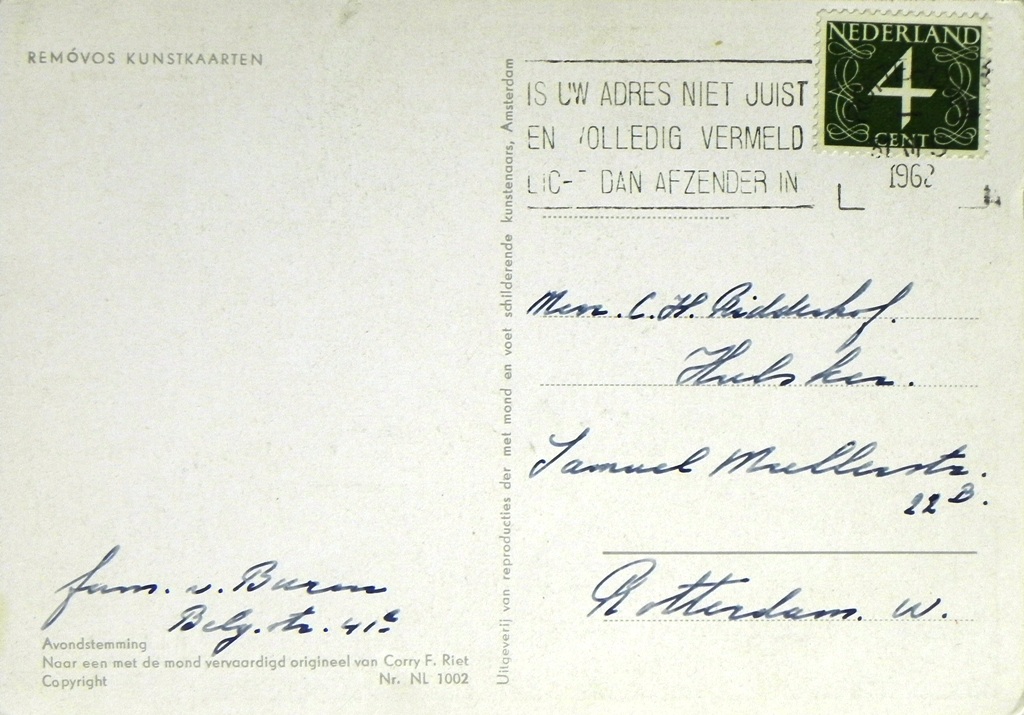 REMÓVOS KUNSTKAARTEN
NEDERLAND
4
CENT
IS UW ADRES NIET JUIST
EN VOLLEDIG VERMELD
DAN AFZENDER IN
1962
Uitgeverij van reproducties der met mond en voet schilderende kunstenaars, Amsterdam
Mevr. C. H. Ridderhof.
Hulsker.
Samuel Mullerstr.
22 B.
Rotterdam. W.
fam. v. Buren
Belg. str. 41c
Avondstemming
Naar een met de mond vervaardigd origineel van Corry F. Riet
Copyright Nr. NL 1002